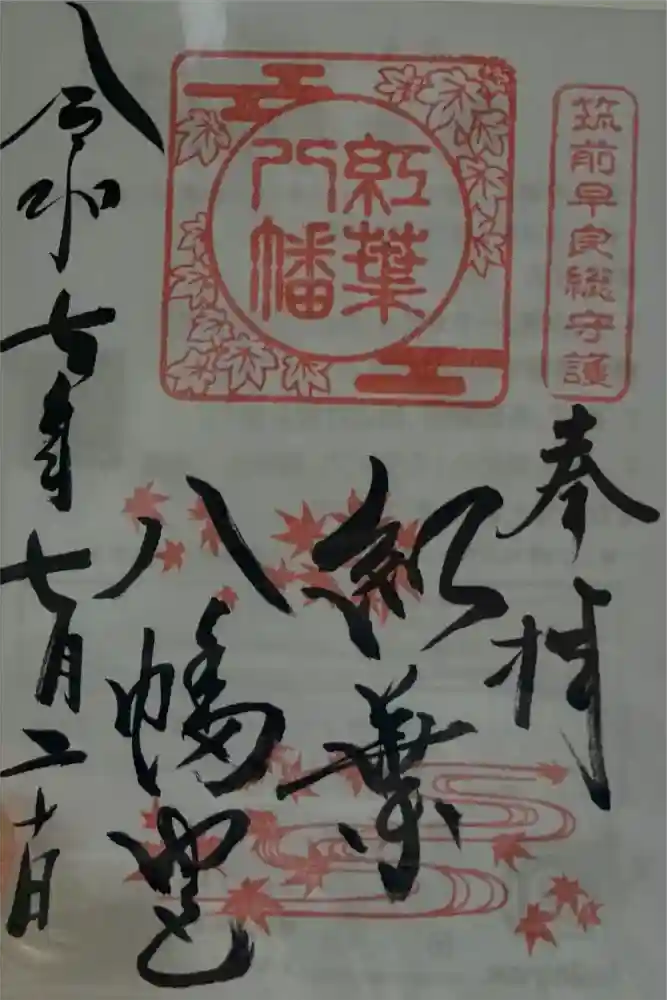 筑前早良総守護
奉拝
紅葉
八幡
紅葉
八幡宮
令和七年七月二十日